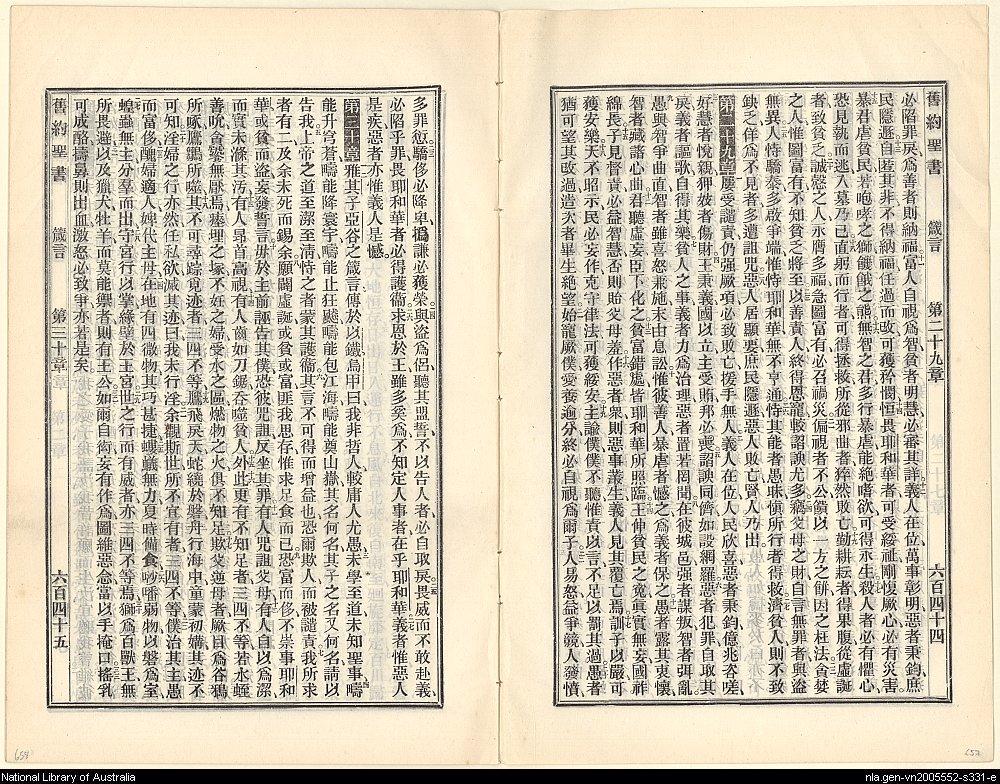 舊約聖書 箴言 第二十九章 六百四十四
必陷罪戾爲善者則納福富人自視爲智貧者明慧必審其詳義人在位萬事彰明惡者秉鈞庶
民隱遯自匿其非不得納福任過而改可獲矜憫恒畏耶和華者可受綏祉剛愎厥心必有災害
暴君虐貧民若咆哮之獅饑餓之羆無智之君多行暴虐能絕嗜欲可得永生殺人者必有懼心
恐見執而逃入墓乃已直躬而行者可得拯救所從邪曲者猝然敗亡勤耕耘者得果腹從虛誕
者致貧乏誠慤之人永膺多福急圖富有必召禍災偏視者不公饋以一方之餅因之枉法貪婪
之人惟圖富有不知貧乏將至以善責人終得恩寵較諂諛尤多竊父母之財自言無罪者與盜
無異人恃驕泰多啟爭端惟恃耶和華無不亨通恃其能者愚昧愼所行者得救濟貧人則不致
缺乏佯爲不見者多遭詛咒惡人居顯要庶民隱遯惡人敗亡賢人乃出
第二十九章屢受譴責仍强厥項必致敗亡援手無人義人在位人民欣喜惡者秉鈞億兆咨嗟
好慧者悅親狎妓者傷財王秉義國以立主受賄邦必喪諂諛同儕如設網羅惡者犯罪自取其
戾義者謳歌自得其樂貧人之事義者力爲治理惡者置若罔聞在彼城邑强者謀叛智者弭亂
愚與智爭曲直智者雖喜怒兼施末由息訟惟彼善人暴虐者憾之爲義者保之愚者露其衷懷
智者藏諸心曲君聽虛妄臣下化之貧富錯處皆耶和華所照臨王伸貧民之寃眞實無妄國祚
綿長子見督責必益智慧否則貽父母羞作惡者衆則惡事叢生義人見其覆亡焉訓子以嚴可
獲安樂天不昭示民必妄作克守律法可獲綏安主諭僕僕不聽惟責以言不足以罰其過愚者
猶可望其改過造次者畢生絕望始寵厥僕愛養逾分終必自視爲爾子人易怒益爭競人發憤
舊約聖書 箴言 第三十章 六百四十五
多罪愆驕侈必降卑撝謙必獲榮與盜爲侶聽其盟誓不以告人者必自取戾畏威而不敢赴義
必陷乎罪畏耶和華者必得護衞求恩於王雖多矣爲不知定人事者在乎耶和華義者惟惡人
是疾惡者亦惟義人是憾
第三十章雅其子亞谷之箴言傳於以鐵烏甲曰我非哲人較庸人尤愚未學至道未知聖事疇
能升穹蒼疇能降寰宇疇能止狂飈疇能包江海疇能奠山嶽其名何名其子之名又何名請以
告我上帝之道至潔至淸恃之者蒙其護衞其言不可得而增益也恐爾欺人而被譴責我所求
者有二及余未死而錫余願闢虛誕或貧或富匪我思存惟求足食而已恐富而侈不崇事耶和
華或貧而盜妄發誓言毋於主前誣告其僕恐彼咒詛反坐其罪有人咒詛父母有人自以爲潔
而實未滌其汚有人昂首高視有人齒如刀鋸呑噬貧人外此更有不知足者三四不等若水蛭
善吮貪饕無厭焉瘞埋之塚不妊之婦受水之區燃物之火俱不知足欺父逆母者厥目爲谷鴉
所啄鷹鶵所噬其不可尋踪覓迹者三四不等鷹飛戾天蛇繞於磐舟行海中童蒙初媾其迹不
可知淫婦之行亦然任私欲滅其迹曰我未行淫余觀斯世所不宜有者三四不等僕治其主愚
而富侈醜婦適人婢代主母在地有四微物其巧甚捷螻蟻無力夏時備食𡁞𡂡弱物以磐爲室
蝗蟲無主分羣而出守宮行以掌緣壁於王宮世之行而有威者亦三四不等焉獅爲百獸王無
所畏避以及獵犬牡羊而莫能禦者則有王公如爾自衒妄有作爲圖維惡念當以手掩口搖乳
可成酪擣鼻則出血激怒必致爭亦若是矣
658
657
National Library of Australia
nla.gen-vn2005552-s331-e